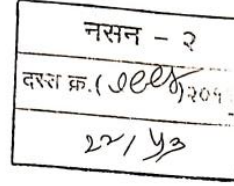 नसन - २
दस्त क्र.( )२०१
२२/५३